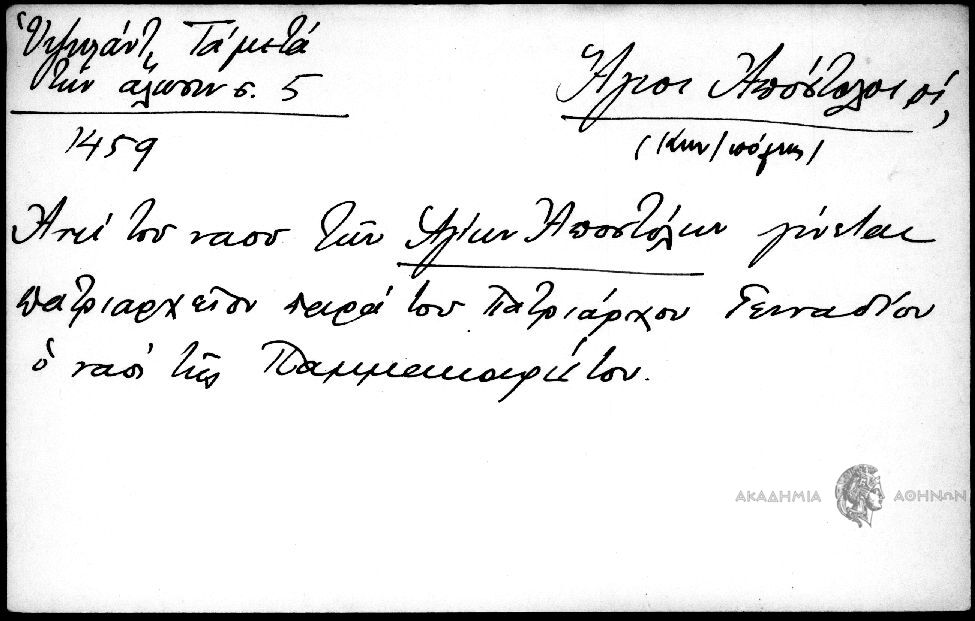 Ὑψηλάντ, Τά μετά
τήν ἅλωσιν σ. 5
Ἅγιοι Ἀπόστολοι οἱ,
1459
(Κων/πόλεως)
Ἀντί του ναου τῶν Ἁγίων Ἀποστόλων γίνεται
πατριαρχεῖον παρά του Πατριάρχου Γενναδίου
ὁ ναός τῆς Παμμακαρίστου.
ΑΚΑΔΗΜΙΑ ΑΘΗΝΩΝ